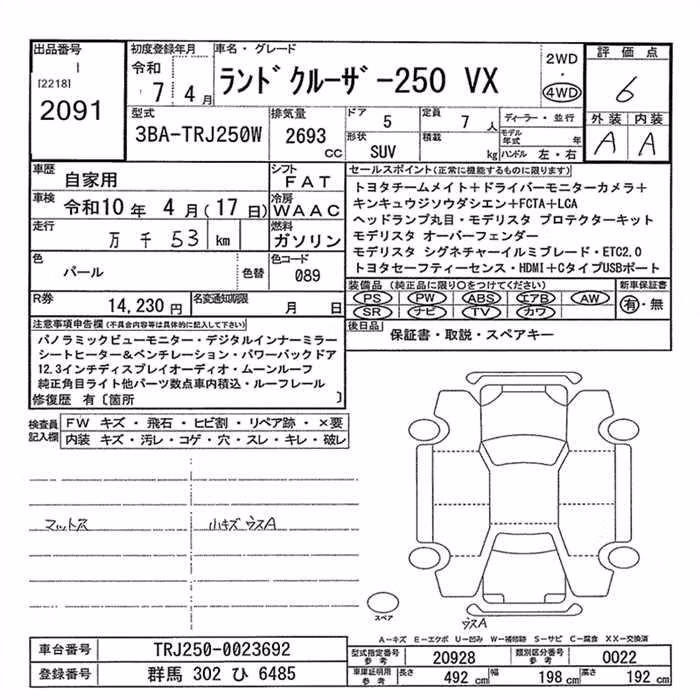 出品番号
[2218]
2091
初度登録年月
令和 7 4 月
車名・グレード
ランドクルーザー250 VX
2WD
・
4WD
評価点
6
外装 内装
A A
型式
3BA-TRJ250W
排気量
2693
CC
ドア 5
定員 7 人
形状 SUV
積載 kg
ディーラー・並行
モデル年式 年
ハンドル 左・右
車歴
自家用
シフト
FAT
車検
令和10 年 4 月(17 日)
冷房
WAAC
走行
万 千 53 km
燃料
ガソリン
色
パール
色替
色コード
089
R券
14,230 円
名変通知期限
月 日
セールスポイント(正常に機能するものに限ります)
トヨタチームメイト+ドライバーモニターカメラ+
キンキュウジソウダシエン+FCTA+LCA
ヘッドランプ丸目・モデリスタ プロテクターキット
モデリスタ オーバーフェンダー
モデリスタ シグネチャーイルミブレード・ETC2.0
トヨタセーフティーセンス・HDMI+CタイプUSBポート
装備品 (純正品に限り○をつけてください)
PS PW ABS エアB AW
SR ナビ TV カワ
新車保証書
有・無
後日品
保証書・取説・スペアキー
注意事項申告欄(不具合内容等は具体的に記入して下さい)
パノラミックビューモニター・デジタルインナーミラー
シートヒーター&ベンチレーション・パワーバックドア
12.3インチディスプレイオーディオ・ムーンルーフ
純正角目ライト他パーツ数点車内積込・ルーフレール
修復歴 有〔箇所 〕
検査員
記入欄
FW キズ・飛石・ヒビ割・リペア跡・×要
内装 キズ・汚レ・コゲ・穴・スレ・キレ・破レ
マットス
小キズ ウスA
スペア
ウスA
A-キズ E-エクボ U-凹み W-補修跡 S-サビ C-腐食 XX-交換済
車台番号
TRJ250-0023692
登録番号
群馬 302 ひ 6485
型式指定番号
参考
20928
類別区分番号
参考
0022
車庫証明用
参考
長さ 492 cm
幅 198 cm
高さ 192 cm